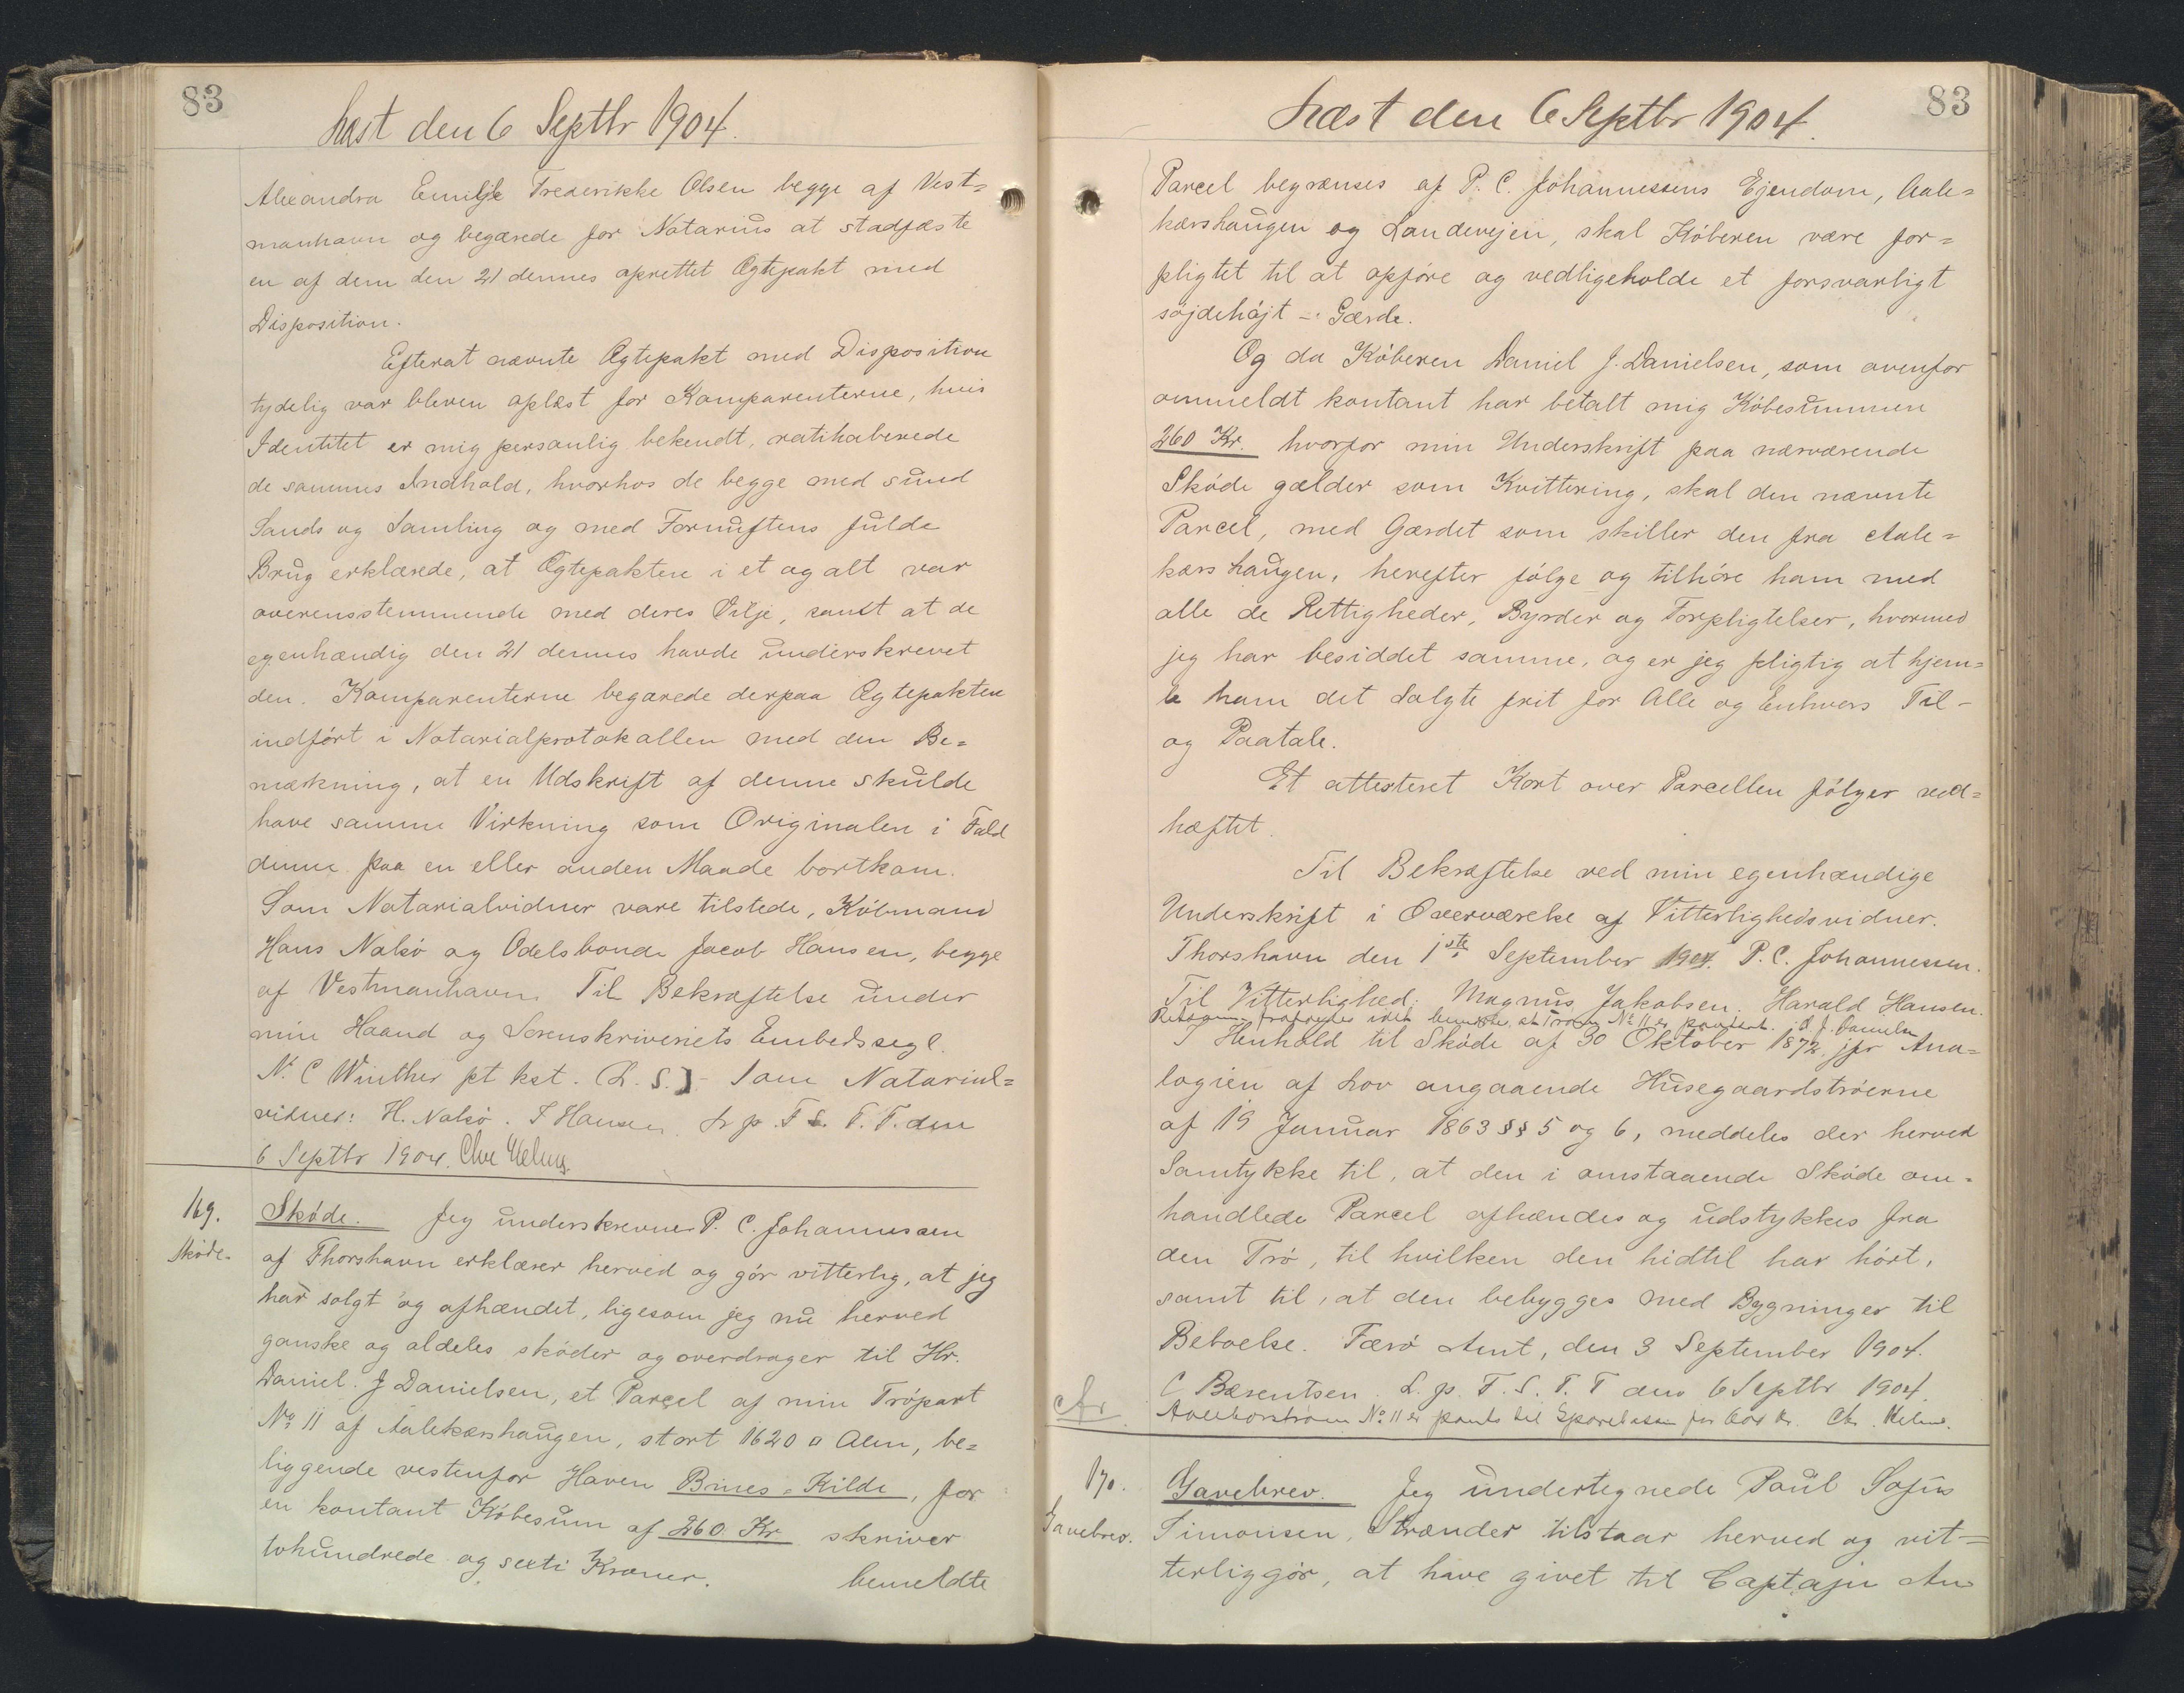 83
Læst den 6 Septbr 1904.
Alexandra Emilje Frederikke Olsen begge af Vest=
manhavn og begærede for Notarius at stadfæste
en af dem den 21 dennes oprettet Ægtepakt med
Disposition.
Efterat nævnte Ægtepakt med Disposition
tydelig var bleven oplæst for Komparenterne, hvis
Identitet er mig personlig bekendt, ratihaberede
de sammes Indhold, hvorhos de begge med sund
Sands og Samling og med Fornuftens fulde
Brug erklærede, at Ægtepakten i et og alt var
overensstemmende med deres Vilje, samt at de
egenhændig den 21 dennes havde underskrevet
den. Komparenterne begærede derpaa Ægtepakten
indført i Notarialprotokollen med den Be=
mærkning, at en Udskrift af denne skulde
have samme Virkning som Originalen i Fald
denne paa en eller anden Maade bortkom.
Som Notarialvidner vare tilstede, Købmand
Hans Nalsø og Odelsbonde Jacob Hansen, begge
af Vestmanhavn. Til Bekræftelse under
min Haand og Sorenskriveriets Embedssegl.
N. C Winther pt kst. (L. S.) - Som Notarial=
vidner: H. Nalsø. J Hansen. L. p. F. S. T. T. den
6 Septbr 1904.
169.
Skøde.
Skøde. Jeg underskrevne P. C. Johannessen
af Thorshavn erklærer herved og gør vitterlig, at jeg
har solgt og afhændet, ligesom jeg nu herved
ganske og aldeles skøder og overdrager til Hr.
Daniel. J Danielsen, et Parcel af min Trøpart
No 11 af Aalekærshaugen, stort 1620 □ Alen, be=
liggende vestenfor Haven Brines=Kilde, for
en kontant Købesum af 260 Kr skriver
tohundrede og sexti Kroner. bemeldte
83
Læst den 6 Septbr 1904.
Parcel begrænses af P. C. Johannessens Ejendom, Aale=
kærshaugen og Landevejen, skal Køberen være for=
pligtet til at opføre og vedligeholde et forsvarligt
søjdehøjt - Gærde.
Og da Køberen Daniel J. Danielsen, som ovenfor
ommeldt kontant har betalt mig Købesummen
260 Kr. hvorfor min Underskrift paa nærværende
Skøde gælder som Kvittering, skal den nævnte
Parcel, med Gærdet som skiller den fra Aale=
kærshaugen, herefter følge og tilhøre ham med
alle de Rettigheder, Byrder og Forpligtelser, hvormed
jeg har besiddet samme, og er jeg pligtig at hjem=
le ham det Solgte frit for Alle og Enhvers Til-
og Paatale.
Et attesteret Kort over Parcellen følger ved=
hæftet.
Til Bekræftelse ved min egenhændige
Underskrift i Overværelse af Vitterlighedsvidner.
Thorshavn den 1ste September 1904. P. C. Johannessen.
Til Vitterlighed: Magnus Jakobsen. Harald Hansen.
No 11 er
I Henhold til Skøde af 30 Oktober 1872 jfr Ana=
logien af Lov angaaende Husegaardstrøerne
af 19 Januar 1863 §§ 5 og 6, meddeles der herved
Samtykke til, at den i omstaaende Skøde om=
handlede Parcel afhændes og udstykkes fra
den Trø, til hvilken den hidtil har hørt,
samt til, at den bebygges med Bygninger til
Beboelse. Færø Amt, den 3 September 1904.
C Bærentsen. L. p. F. S. T. T den 6 Septbr 1904.
No 11 er
170.
Gavebrev.
Gavebrev. Jeg undertegnede Paul Sofus
Simonsen, Strænder tilstaar herved og vit=
terliggør, at have givet til Captajn An